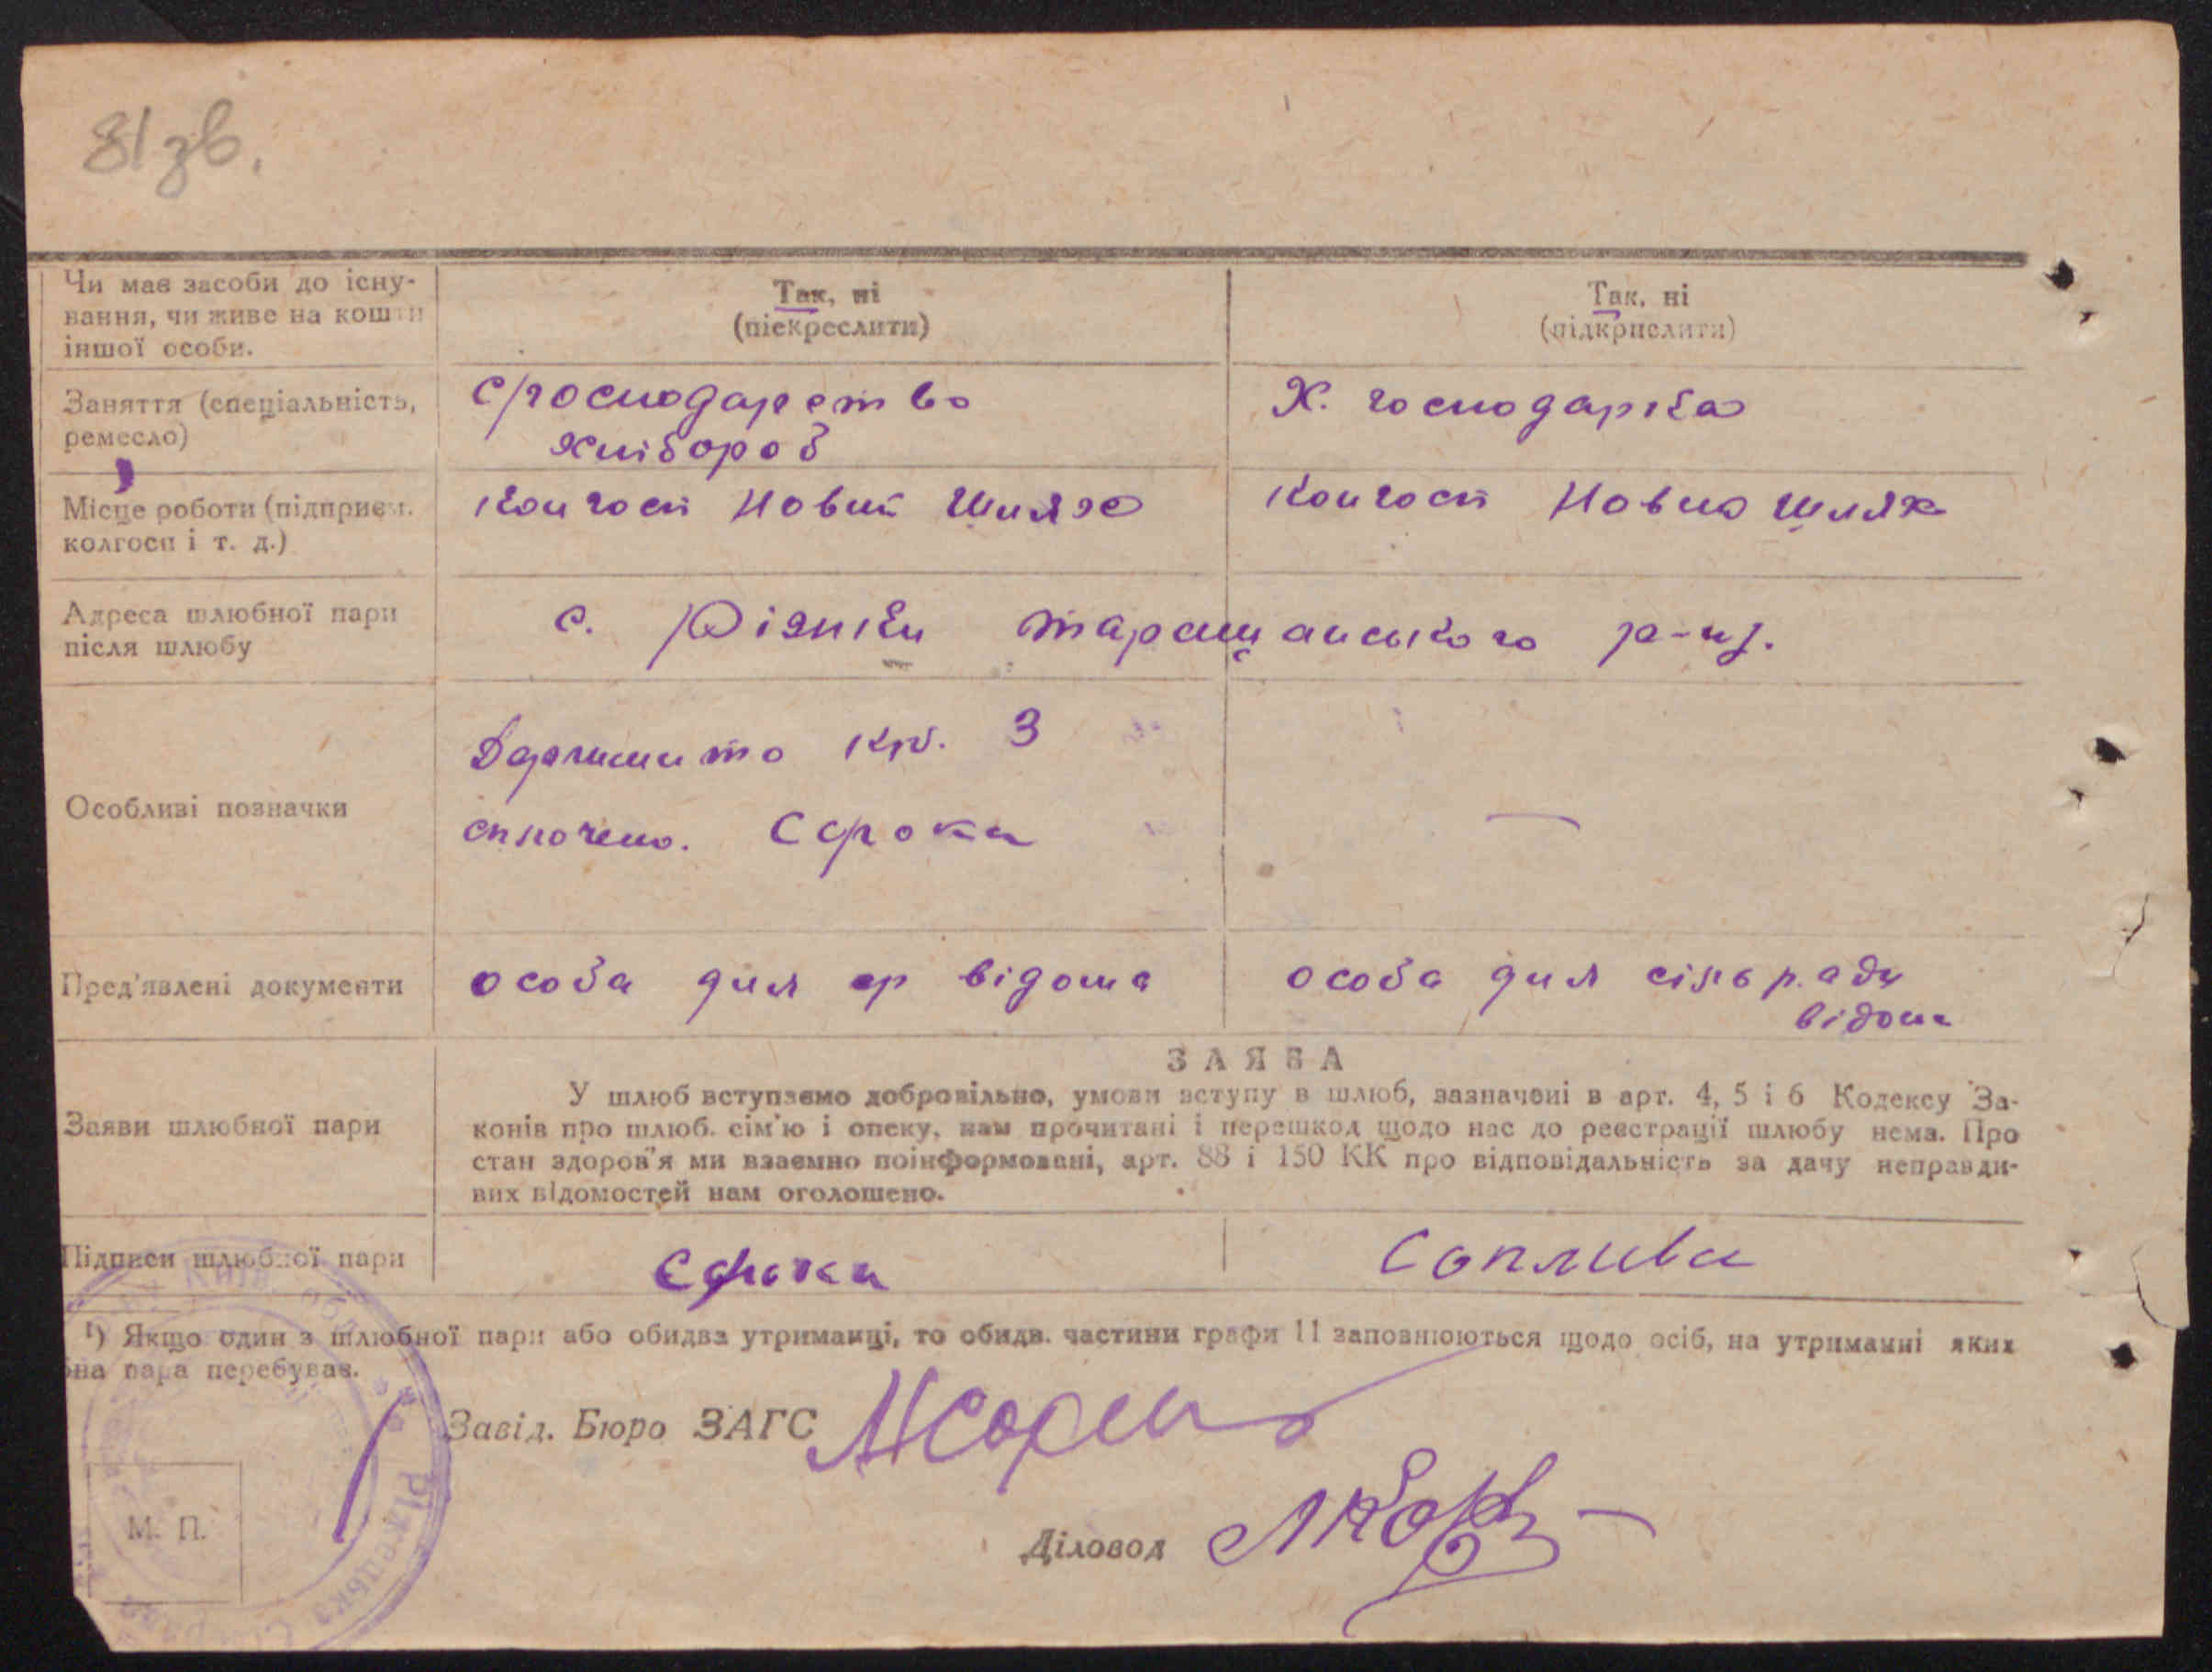 81 зв.
Чи має засоби до існу-
вання, чи живе на кошти
іншої особи.
Так, ні
(піскреслити)
Так, ні
(підкрислити)
Заняття (спеціальність,
ремесло)
с/господарство
хлібороб
Х. господарка
Місце роботи (підприєм.
колгосп і т. д.)
Колгосп Новий Шлях
Колгосп Новий Шлях
Адреса шлюбної пари
після шлюбу
с. Ріжки Таращанського р-ну.
Особливі позначки
Держмито крб. 3
сплочено. Сорока
—
Пред'явлені документи
особа для ср відома
особа для сільради
відома
Заяви шлюбної пари
ЗАЯВА
У шлюб вступаємо добровільно, умови вступу в шлюб, зазначені в арт. 4, 5 і 6 Кодексу За-
конів про шлюб. сім'ю і опеку, нам прочитані і перешкод щодо нас до реєстрації шлюбу нема. Про
стан здоров'я ми взаємно поінформовані, арт. 88 і 150 КК про відповідальність за дачу неправди-
вих відомостей нам оголошено.
Підписи шлюбної пари
Сорока
Соплива
¹) Якщо один з шлюбної пари або обидва утриманці, то обидв. частини графи 11 заповнюються щодо осіб, на утриманні яких
она пара перебуває.
Завід. Бюро ЗАГС
Діловод
М. П.